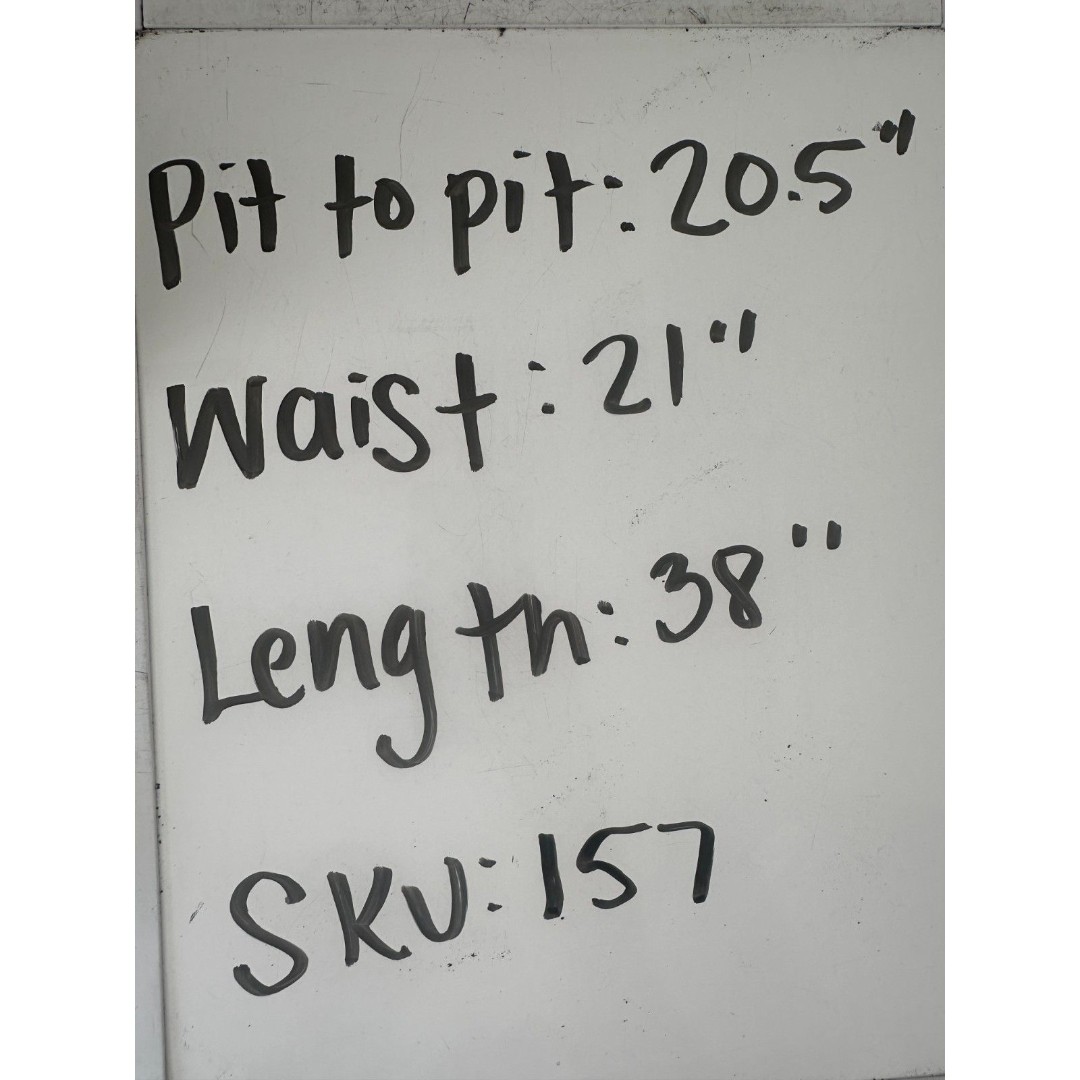 Pit to pit: 20.5"
Waist: 21"
Length: 38"
SKU: 157